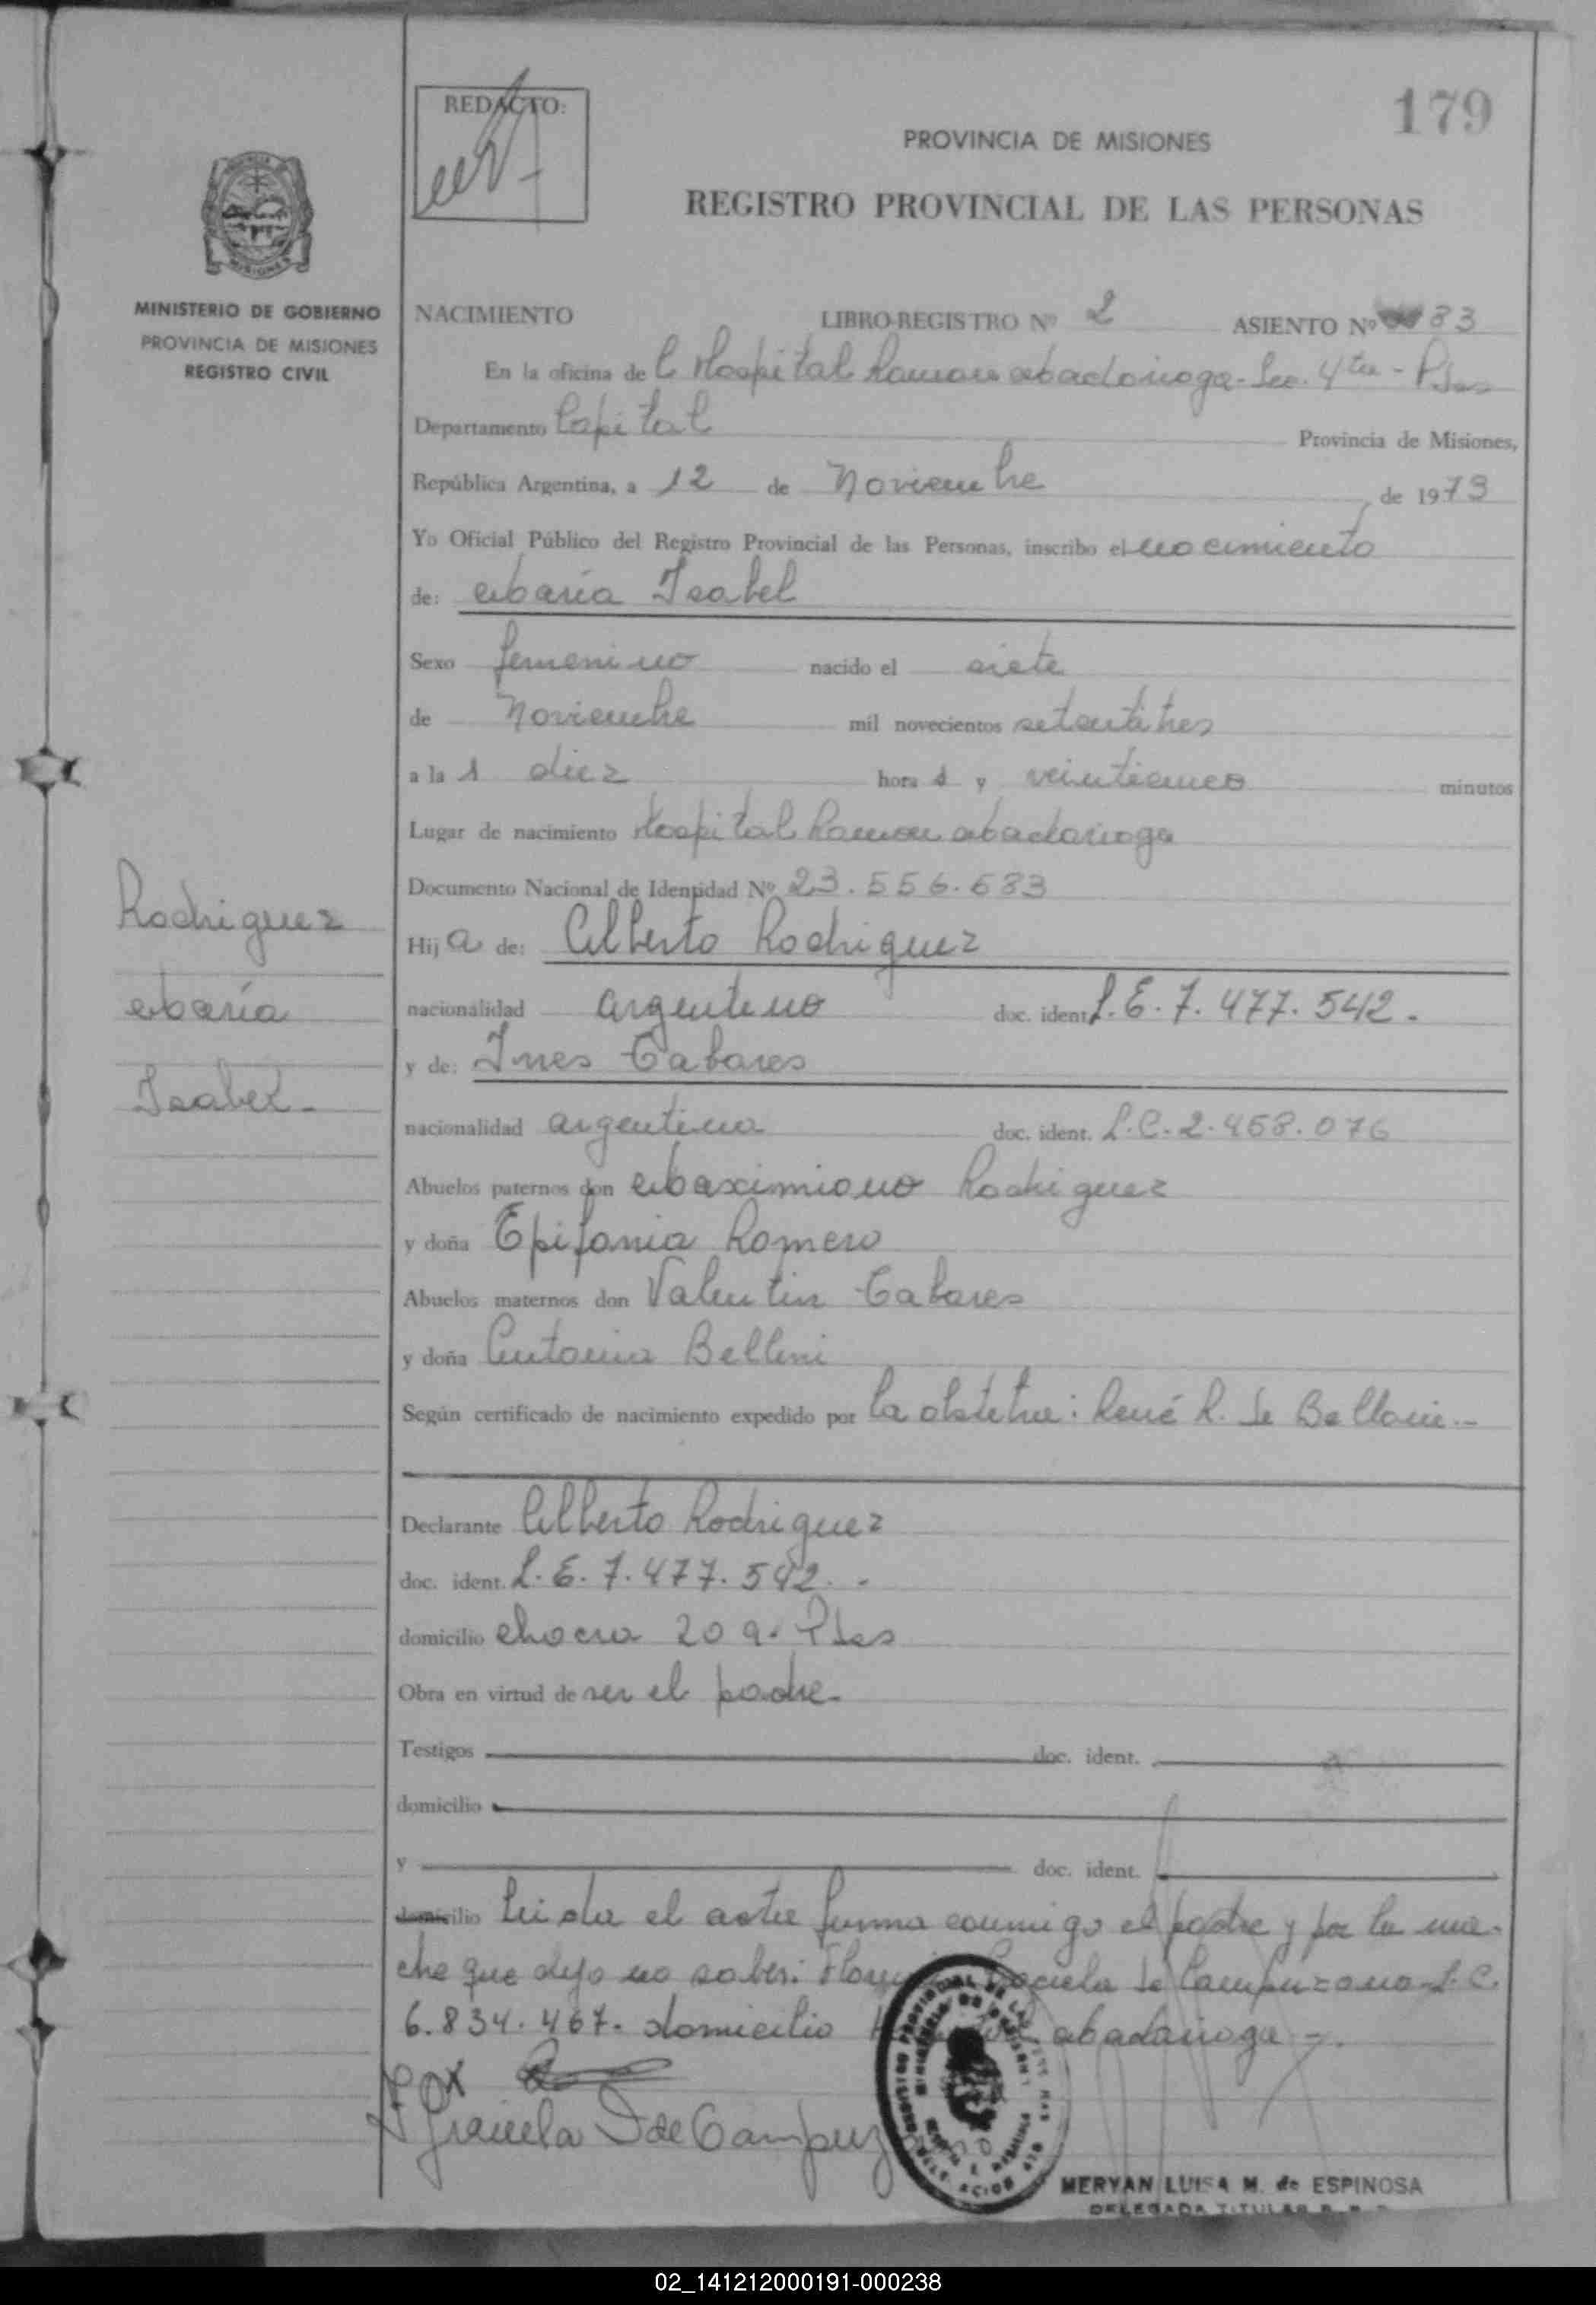 179
REDACTO:
PROVINCIA DE MISIONES
REGISTRO PROVINCIAL DE LAS PERSONAS
MINISTERIO DE GOBIERNO
PROVINCIA DE MISIONES
REGISTRO CIVIL
NACIMIENTO LIBRO-REGISTRO Nº 2 ASIENTO Nº 83
En la oficina de Hospital Ramon Madariaga - Sec. 4ta - Pdas
Departamento Capital Provincia de Misiones,
República Argentina, a 12 de Noviembre de 1973
Yo Oficial Público del Registro Provincial de las Personas, inscribo el nacimiento
de: María Isabel
Sexo femenino nacido el siete
de Noviembre mil novecientos setentitres
a la s diez hora s y veinticinco minutos
Lugar de nacimiento Hospital Ramon Madariaga
Documento Nacional de Identidad Nº 23.556.683
Rodriguez
María
Isabel-
Hij a de: Alberto Rodriguez
nacionalidad argentino doc. ident. L.E. 7.477.542.
y de: Ines Tabares
nacionalidad argentina doc. ident. L.C. 2.458.076
Abuelos paternos don Maximiano Rodriguez
y doña Epifania Romero
Abuelos maternos don Valentin Tabares
y doña Antonia Bellini
Según certificado de nacimiento expedido por la obstetra: René R. de
Declarante Alberto Rodriguez
doc. ident. L.E. 7.477.542.-
domicilio chacra 209. Pdas
Obra en virtud de ser el padre-
Testigos doc. ident.
domicilio
y doc. ident.
domicilio Leida el acta firma conmigo el padre y por la ma-
dre que dijo no saber: Graciela de Campuzano L.C.
6.834.467. domicilio Madariaga -.
Graciela de Campuz
MERYAN LUISA M. de ESPINOSA
DELEGADA TITULAR
02_141212000191-000238